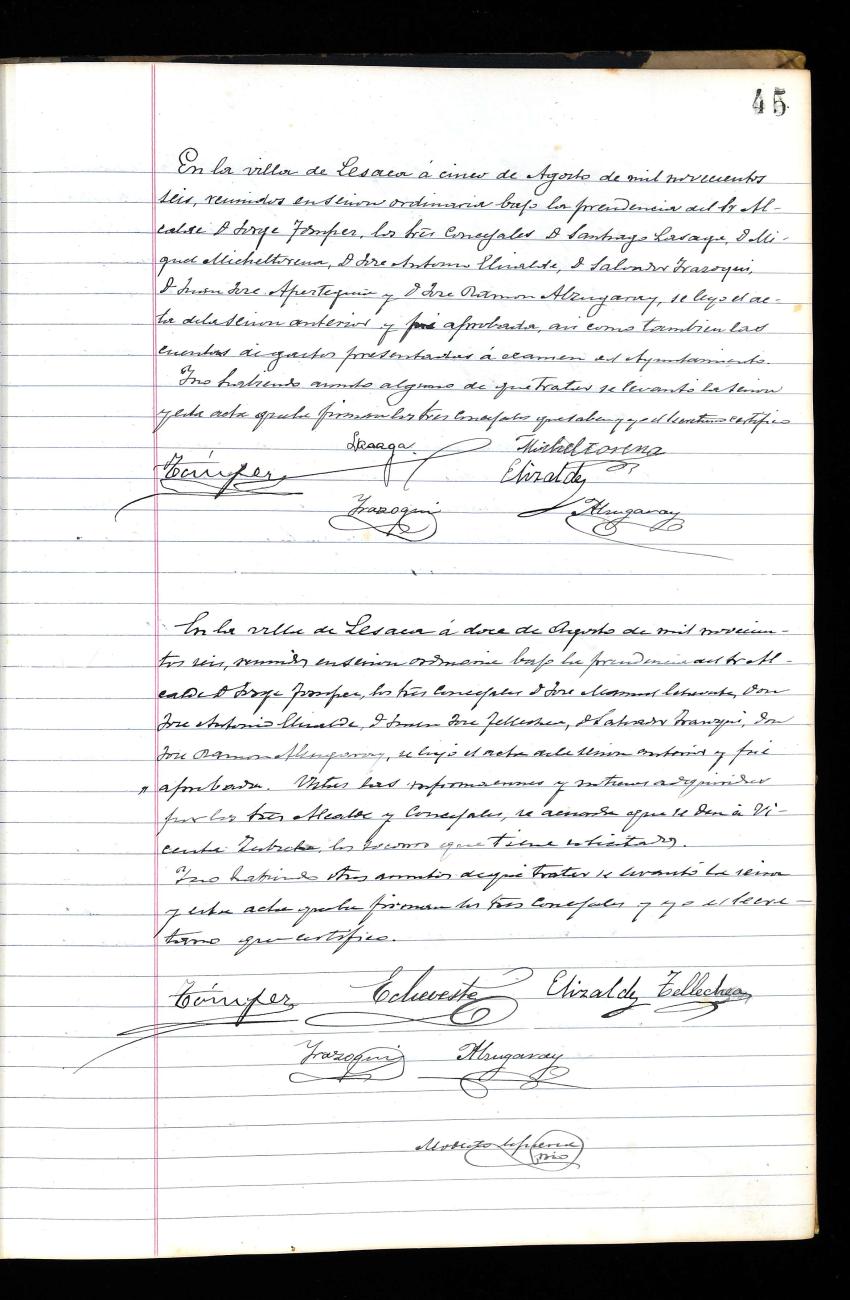 45
En la villa de Lesaca á cinco de Agosto de mil novecientos
seis, reunidos en sesion ordinaria bajo la presidencia del Sr Al-
calde D Jorge Tómper, los tres Concejales D Santiago Lasaga, D Mi-
guel Micheltorena, D Jose Antonio Elizalde, D Salvador Irazoqui,
D Juan Jose Aperteguia y D Jose Ramon Alzugaray, se leyo el ac-
ta de la sesion anterior y fué aprobada, asi como tambien las
cuentas de gastos presentadas á examen del Ayuntamiento.
Y no habiendo asunto alguno de que tratar se levantó la sesion
y esta acta que la firman los tres Concejales que saben y yo el Secretario certifico
Lasaga Micheltorena
Tómper Elizalde
Irazoqui Alzugaray
En la villa de Lesaca á doce de Agosto de mil novecien-
tos seis, reunidos en sesion ordinaria bajo la presidencia del Sr Al-
calde D Jorge Tomper, los tres Concejales D Jose Manuel Echeveste, Don
Jose Antonio Elizalde, D Juan Jose Tellechea, D Salvador Irazoqui, Don
Jose Ramon Alzugaray, se leyó el acta de la sesion anterior y fué
" aprobada. Vistas las informaciones y noticias adquiridas
por los tres Alcalde y Concejales, se acuerda que se den á Vi-
centa los socorros que tiene solicitados.
Y no habiendo otros asuntos de que tratar se levantó la sesion
y esta acta que la firman los tres Concejales y yo el Secre-
tario que certifico.
Tómper Echeveste Elizalde Tellechea
Irazoqui Alzugaray
Modesto
Srio